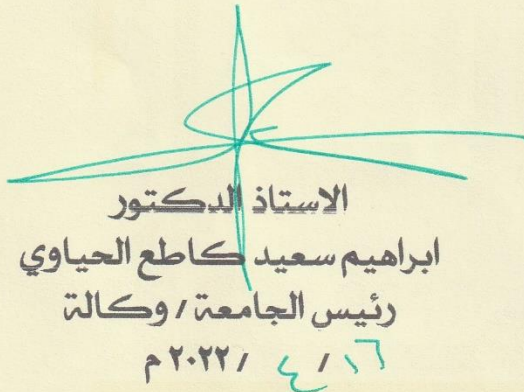 الاستاذ الدكتور
ابراهيم سعيد كاطع الحياوي
رئيس الجامعة / وكالة
١٦ / ٤ / ٢٠٢٢ م